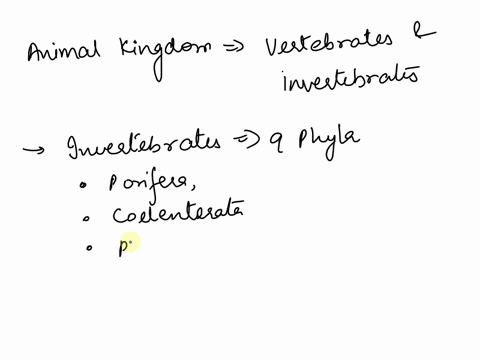 Animal Kingdom => Vertebrates &
invertebrates
→ Invertebrates => 9 Phyla
• Porifera,
• Coelenterata
• P